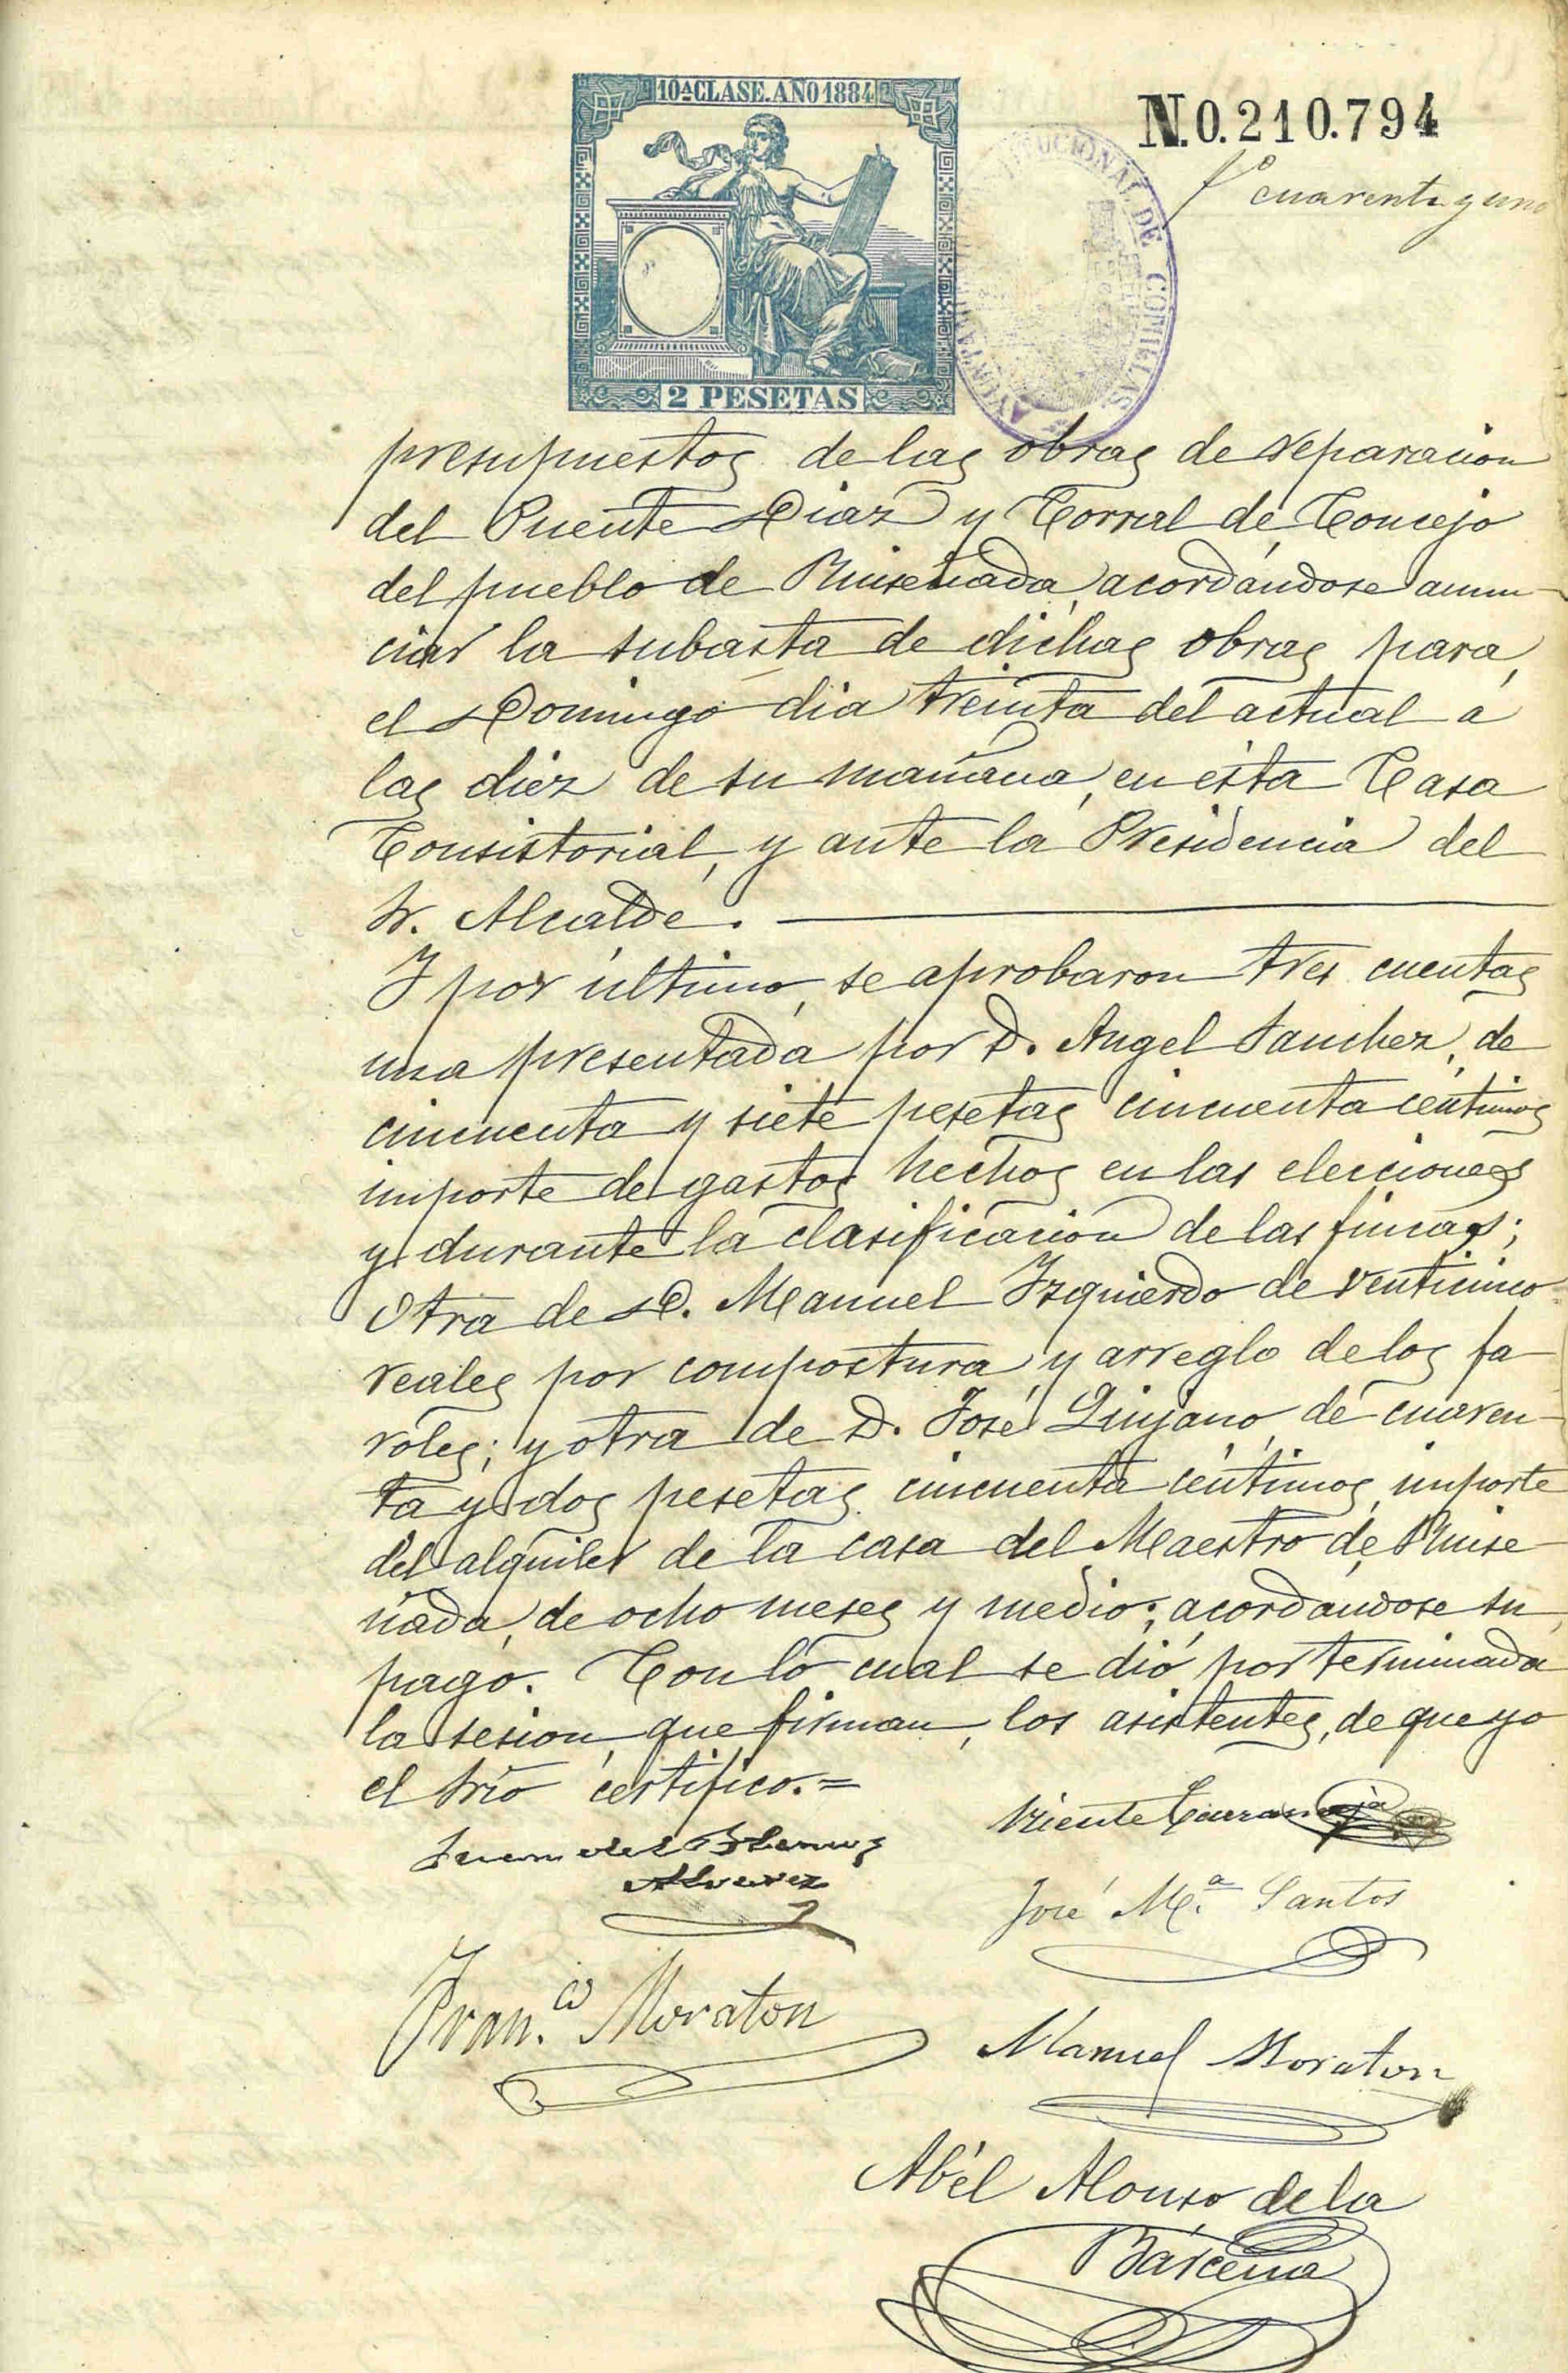 10ª CLASE. AÑO 1884
N.0.210.794
fº cuarenta y uno
CONSTITUCIONAL DE COMILLAS
2 PESETAS
presupuestos de las obras de reparacion
del Puente Diaz y Corral de Concejo
del pueblo de Ruiseñada, acordándose anun-
ciar la subasta de dichas obras para
el Domingo dia treinta del actual á
las diez de su mañana, en ésta Casa
Consistorial, y ante la Presidencia del
Sr. Alcalde.
Y por último, se aprobaron tres cuentas
una presentada por D. Angel Sanchez, de
cincuenta y siete pesetas cincuenta céntimos
importe de gastos hechos en las elecciones
y durante la clasificacion de las fincas;
otra de D. Manuel Izquierdo de venticinco
reales por compostura y arreglo de los fa-
roles; y otra de D. José Quijano, de cuaren-
ta y dos pesetas cincuenta céntimos, importe
del alquiler de la casa del Maestro de Ruise-
ñada, de ocho meses y medio; acordándose su
pago. Con lo cual se dió por terminada
la sesion, que firman, los asistentes, de que yo
el Srio certifico.=
Vicente
Juan del
Alvarez
José M.ª Santos
Fran.co Moraton
Manuel Moraton
Abél Alonso de la
Bárcena